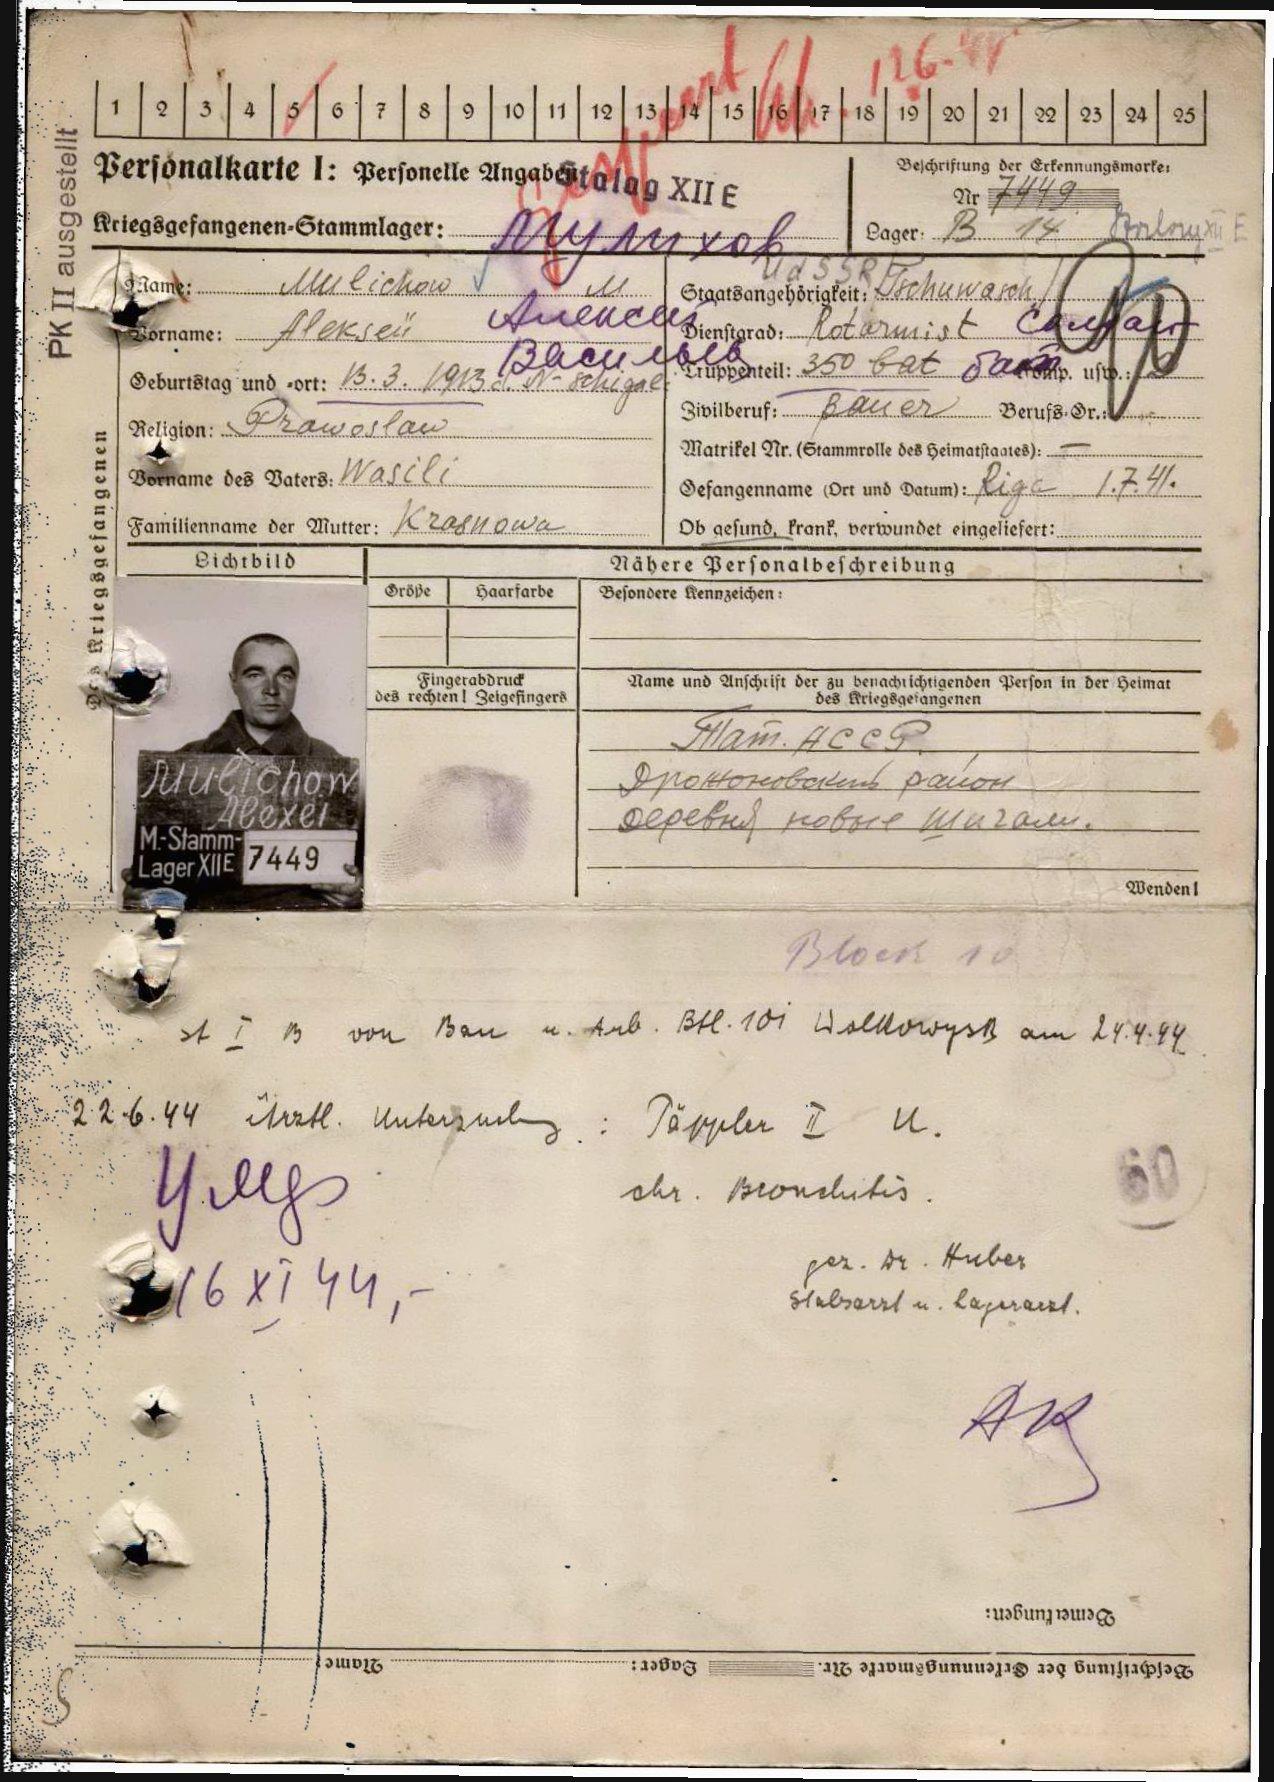 1 2 3 4 5 6 7 8 9 10 11 12 13 14 15 16 17 18 19 20 21 22 23 24 25
PK II ausgestellt
Personalkarte I: Personelle Angaben
Stalag XII E
Beschriftung der Erkennungsmarke:
Nr 7449
Kriegsgefangenen-Stammlager:
Мулихов
Lager: B 14
XII E
Des Kriegsgefangenen
Name: Mulichow M
UdSSR
Staatsangehörigkeit: Tschuwasch
Vorname: Aleksei
Алексей
Dienstgrad: Rotarmist Солдат
Василев
Truppenteil: 350 bat бат Komp. usw.:
Geburtstag und -ort: 13.3.1913 d. N-Schigale
Zivilberuf: Bauer Berufs-Gr.:
Religion: Prawoslaw
Matrikel Nr. (Stammrolle des Heimatstaates): —
Vorname des Vaters: Wasili
Gefangenname (Ort und Datum): Riga 1.7.41.
Familienname der Mutter: Krasnowa
Ob gesund, krank, verwundet eingeliefert:
Lichtbild
Nähere Personalbeschreibung
Größe Haarfarbe
Besondere Kennzeichen:
Fingerabdruck
des rechten! Zeigefingers
Name und Anschrift der zu benachrichtigenden Person in der Heimat
des Kriegsgefangenen
Тат. АССР.
Дрожоновский район
деревня новые Шигали.
Mulichow
Alexei
M.-Stamm-
Lager XII E 7449
Wenden!
Block 10
st I B von Bau u. Arb. Btl. 101 Wolkowysk am 24.4.44
22.6.44 Ärztl. Untersuchung: Päppler II U.
chr. Bronchitis.
60
16 XI 44,-
gez. Dr. Huber
Stabsarzt u. Lagerarzt.
Bemerkungen:
Beschriftung der Erkennungsmarke Nr. Lager: Name: